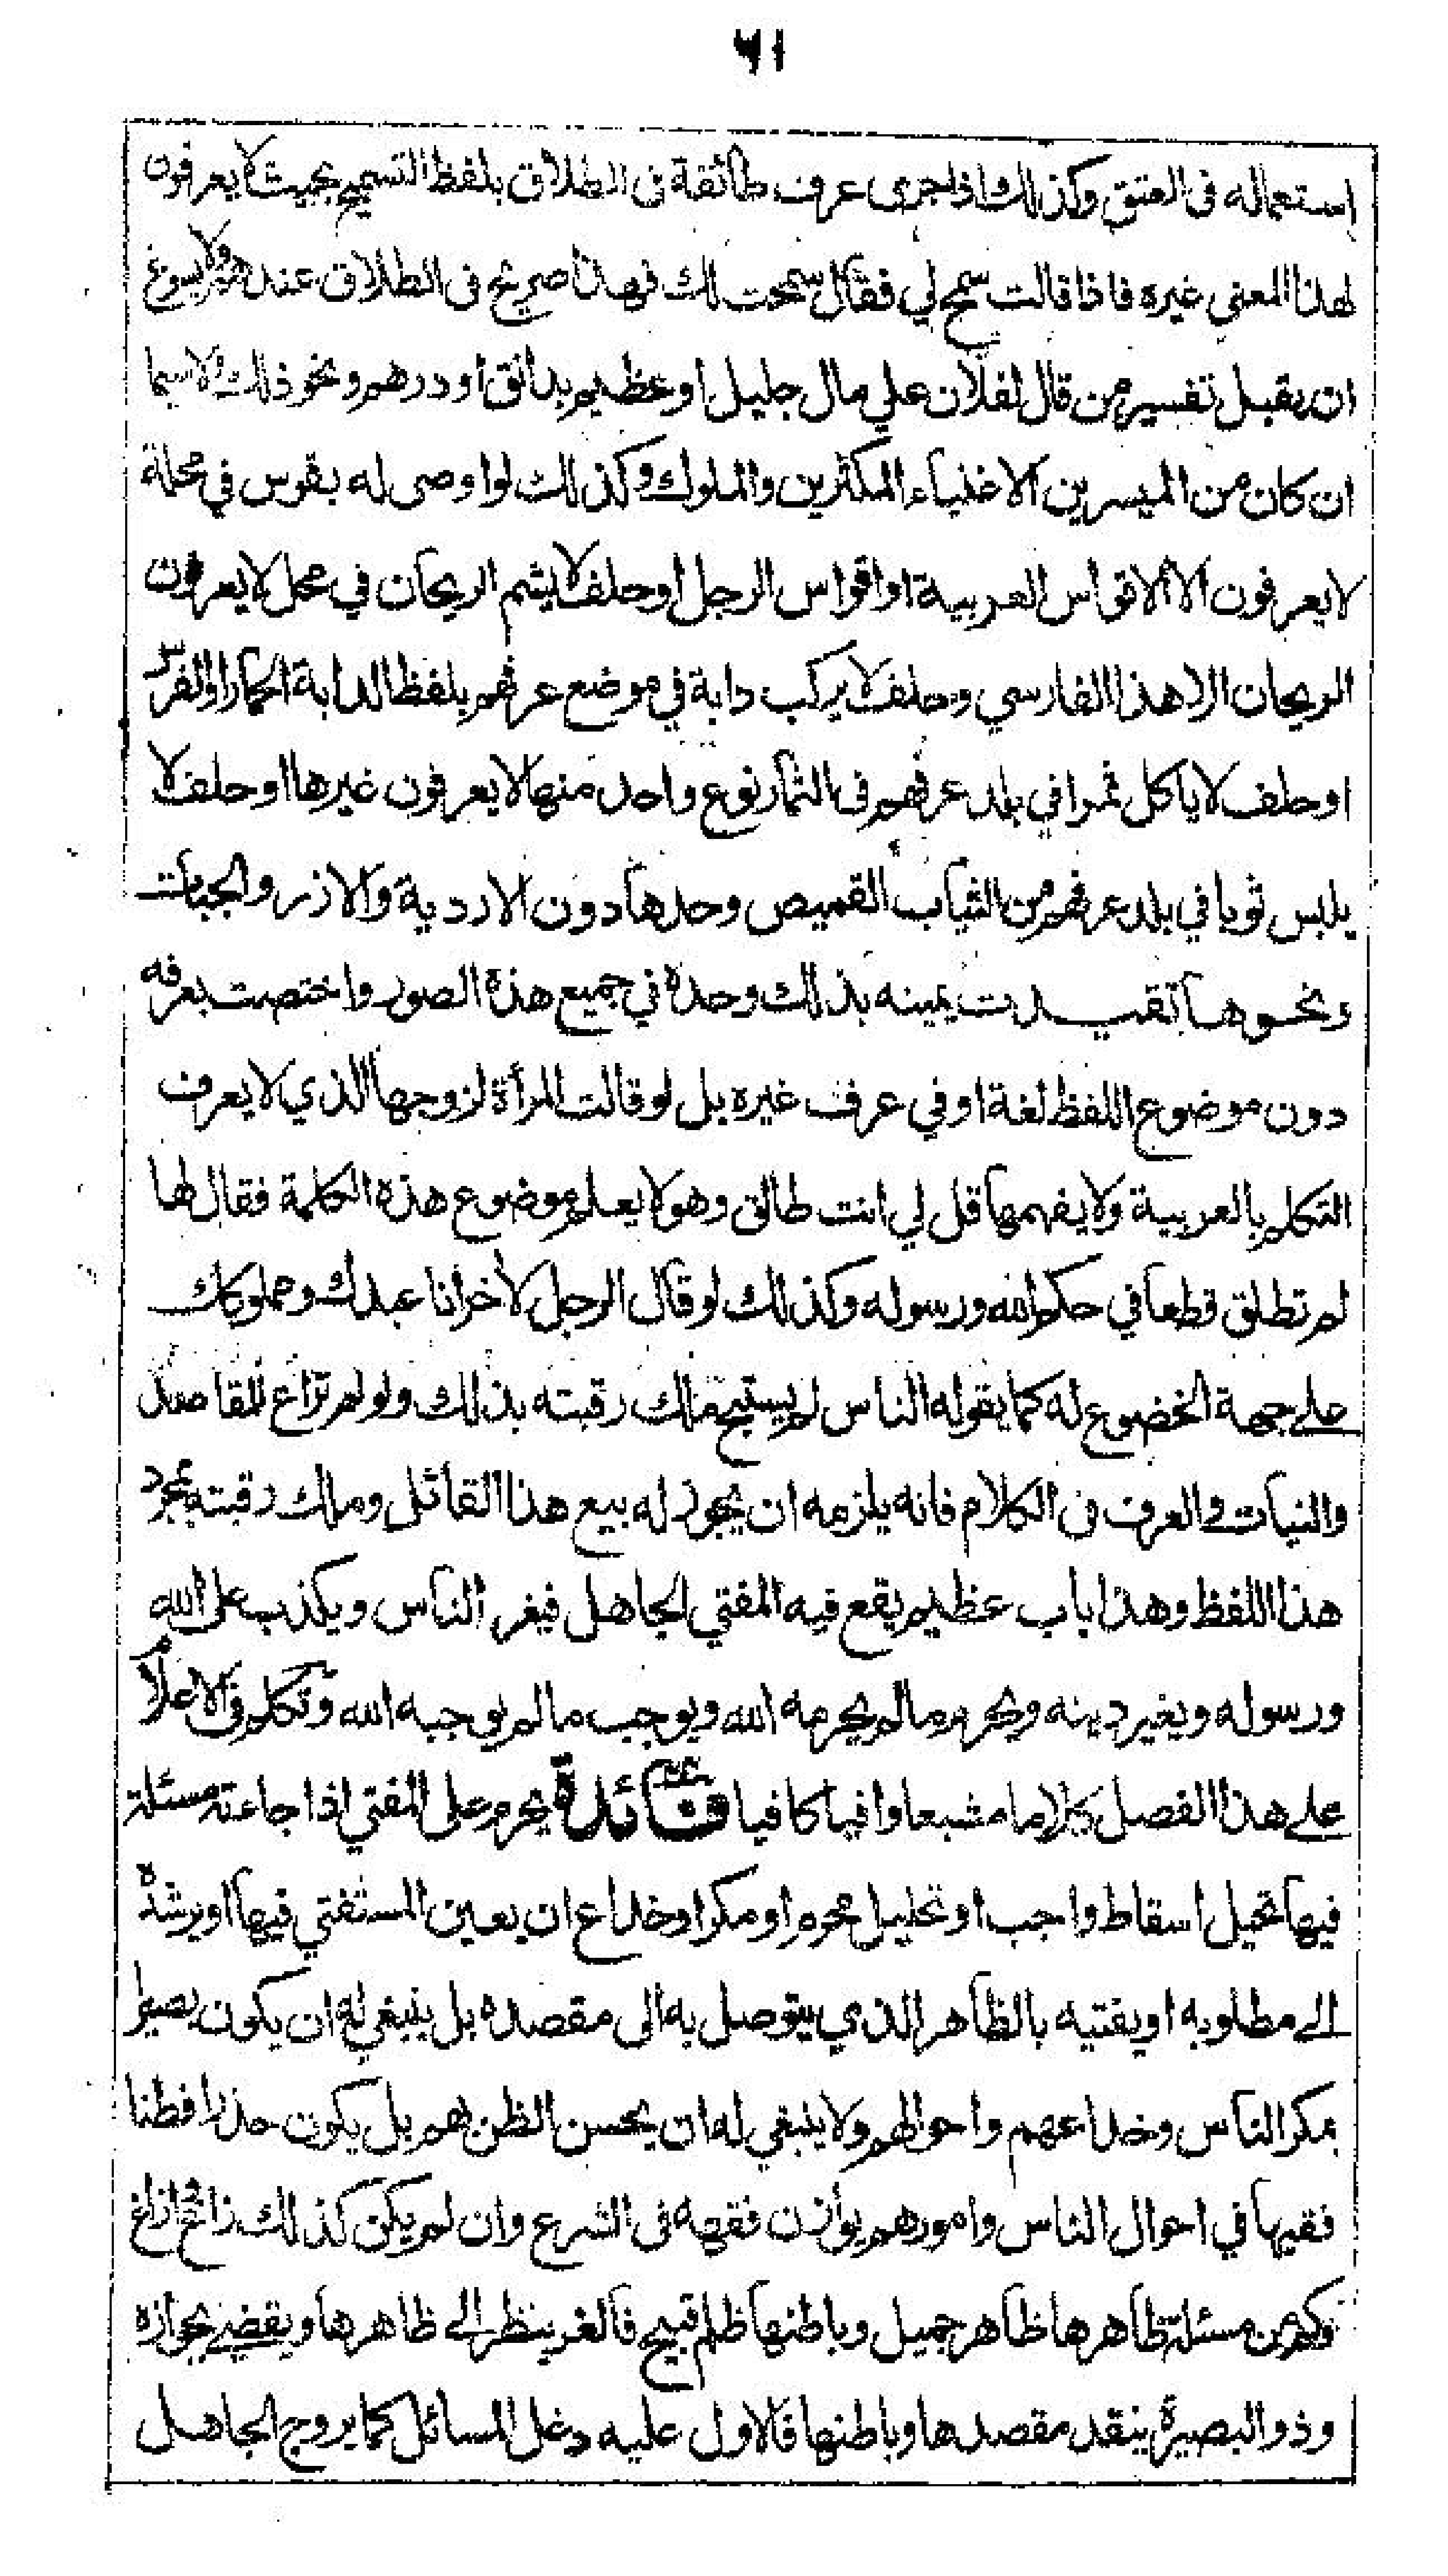 ٦١
استعماله فى العتق وكذلك اذا جرى عرف طائفة فى الطلاق بلفظ التسميح بحيث لا يعرفون
لهذا المعنى غيره فاذا قالت سمح لي فقال سمحت لك فهذا صريح فى الطلاق عندهم ولا يسوغ
ان يقبل تفسير من قال لفلان علي مال جليل او عظيم بدانق او درهم ونحو ذلك ولا سيما
ان كان من الميسرين الاغنياء المكثرين والملوك وكذلك لو اوصى له بقوس في محلة
لا يعرفون الا الاقواس العربية او اقواس الرجل او حلف لا يشم الريحان في محل لا يعرفون
الريحان الا هذا الفارسي وحلف لا يركب دابة في موضع عرفهم بلفظ الدابة الحمار او الفرس
او حلف لا ياكل ثمرا في بلد عرفهم فى الثمار نوع واحد منها لا يعرفون غيرها او حلف لا
يلبس ثوبا في بلد عرفهم من الثياب القميص وحدها دون الاردية والازر والجباب
ونحوها تقيدت يمينه بذلك وحده في جميع هذه الصور واختصت بعرفه
دون موضوع اللفظ لغة او في عرف غيره بل لو قالت المرأة لزوجها الذي لا يعرف
التكلم بالعربية ولا يفهمها قل لي انت طالق وهو لا يعلم موضوع هذه الكلمة فقال لها
لم تطلق قطعا في حكم الله ورسوله وكذلك لو قال الرجل لأخر انا عبدك ومملوكك
على جهة الخضوع له كما يقوله الناس لم يستبح ملك رقبته بذلك ولو لم تراع المقاصد
والنيات والعرف فى الكلام فانه يلزمه ان يجوز له بيع هذا القائل وملك رقبته بمجرد
هذا اللفظ وهذا باب عظيم يقع فيه المفتي الجاهل فيغر الناس ويكذب على الله
ورسوله ويغير دينه ويحرم ما لم يحرمه الله ويوجب ما لم يوجبه الله وتكلم فى الاعلام
على هذا الفصل كلاما مشبعا وافيا كافيا فائدة يحرم على المفتي اذا جاءته مسئلة
فيها تحيل اسقاط واجب او تحليل محرم او مكر او خداع ان يعين المستفتي فيها او يرشده
الى مطلوبه او يفتيه بالظاهر الذي يتوصل به الى مقصده بل ينبغي له ان يكون بصيرا
بمكر الناس وخداعهم واحوالهم ولا ينبغي له ان يحسن الظن بهم بل يكون حذرا فطنا
فقيها في احوال الناس وامورهم يوازن فقهه فى الشرع وان لم يكن كذلك زاغ وازاغ
وكم من مسئلة ظاهرها ظاهر جميل وباطنها ظلم قبيح فالغر ينظر الى ظاهرها ويقضي بجوازه
وذو البصيرة ينقد مقصدها وباطنها فالاول عليه دغل المسائل كما يروج الجاهل